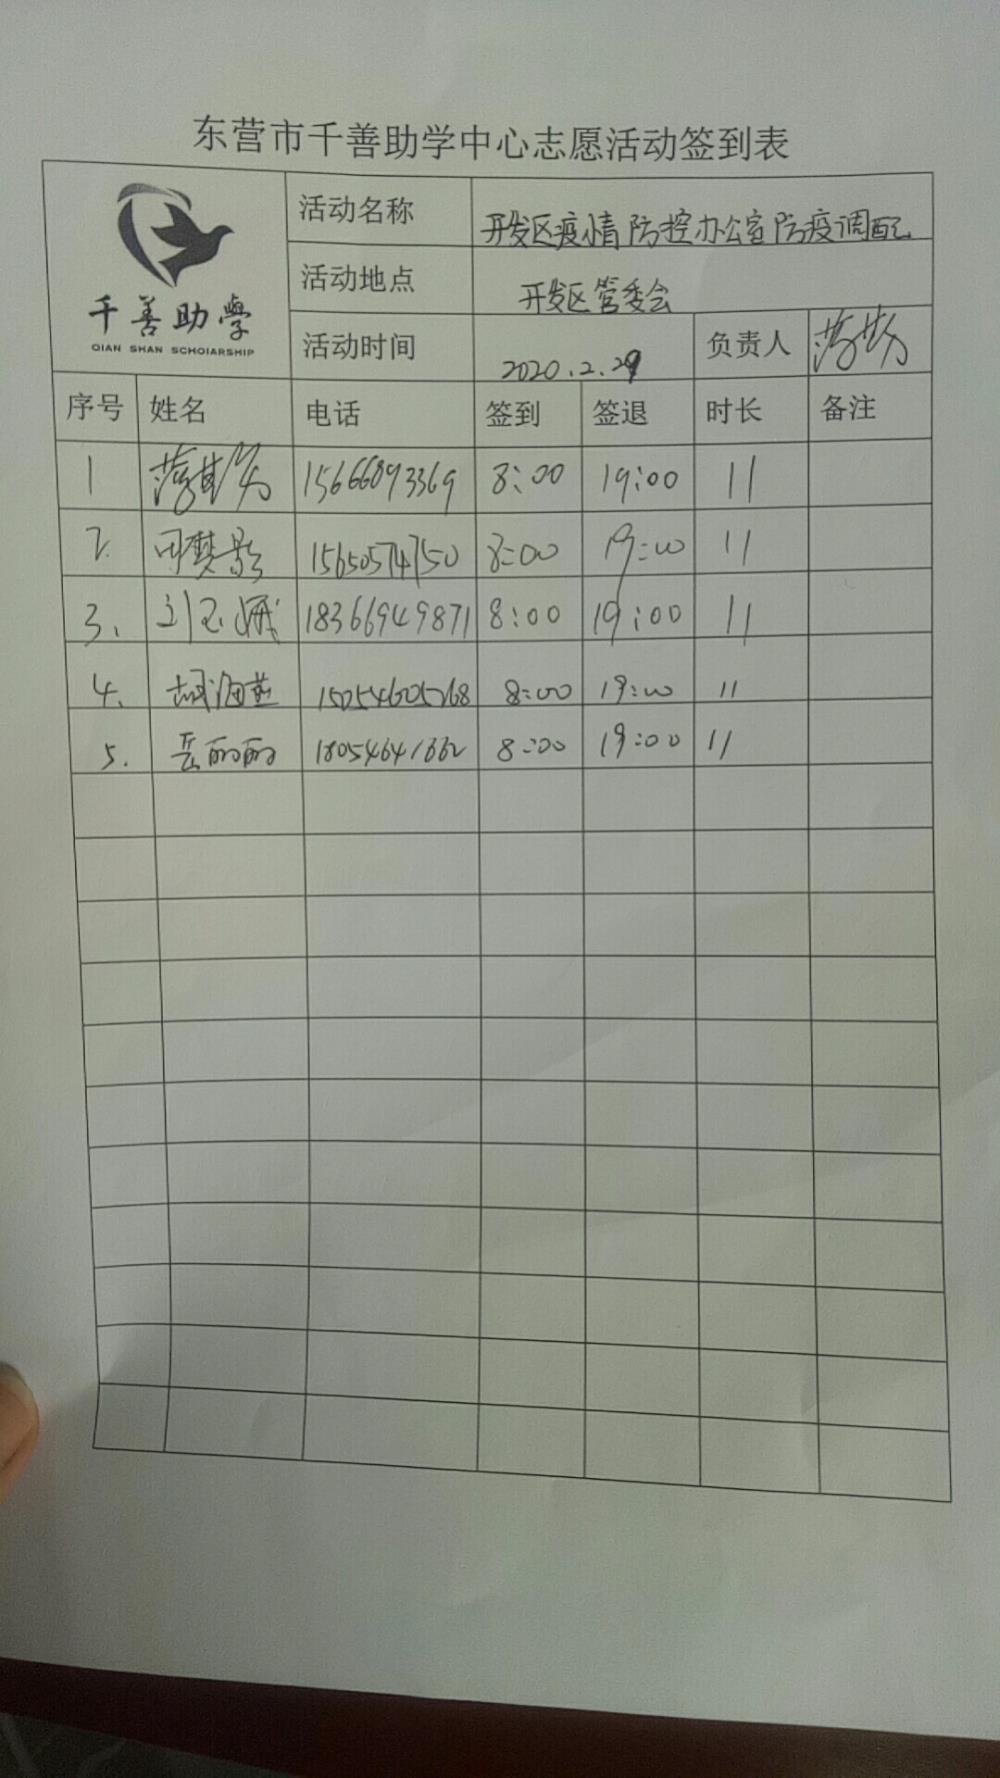 东营市千善助学中心志愿活动签到表
千善助學
QIAN SHAN SCHOIARSHIP
活动名称 开发区疫情防控办公室防疫调配
活动地点 开发区管委会
活动时间 2020.2.29 负责人
序号 姓名 电话 签到 签退 时长 备注
1 15666893369 8:00 19:00 11
2. 15650574750 8:00 19:00 11
3. 刘玉娥 18366949871 8:00 19:00 11
4. 胡海燕 15054605268 8:00 19:00 11
5. 岳丽丽 8:00 19:00 11